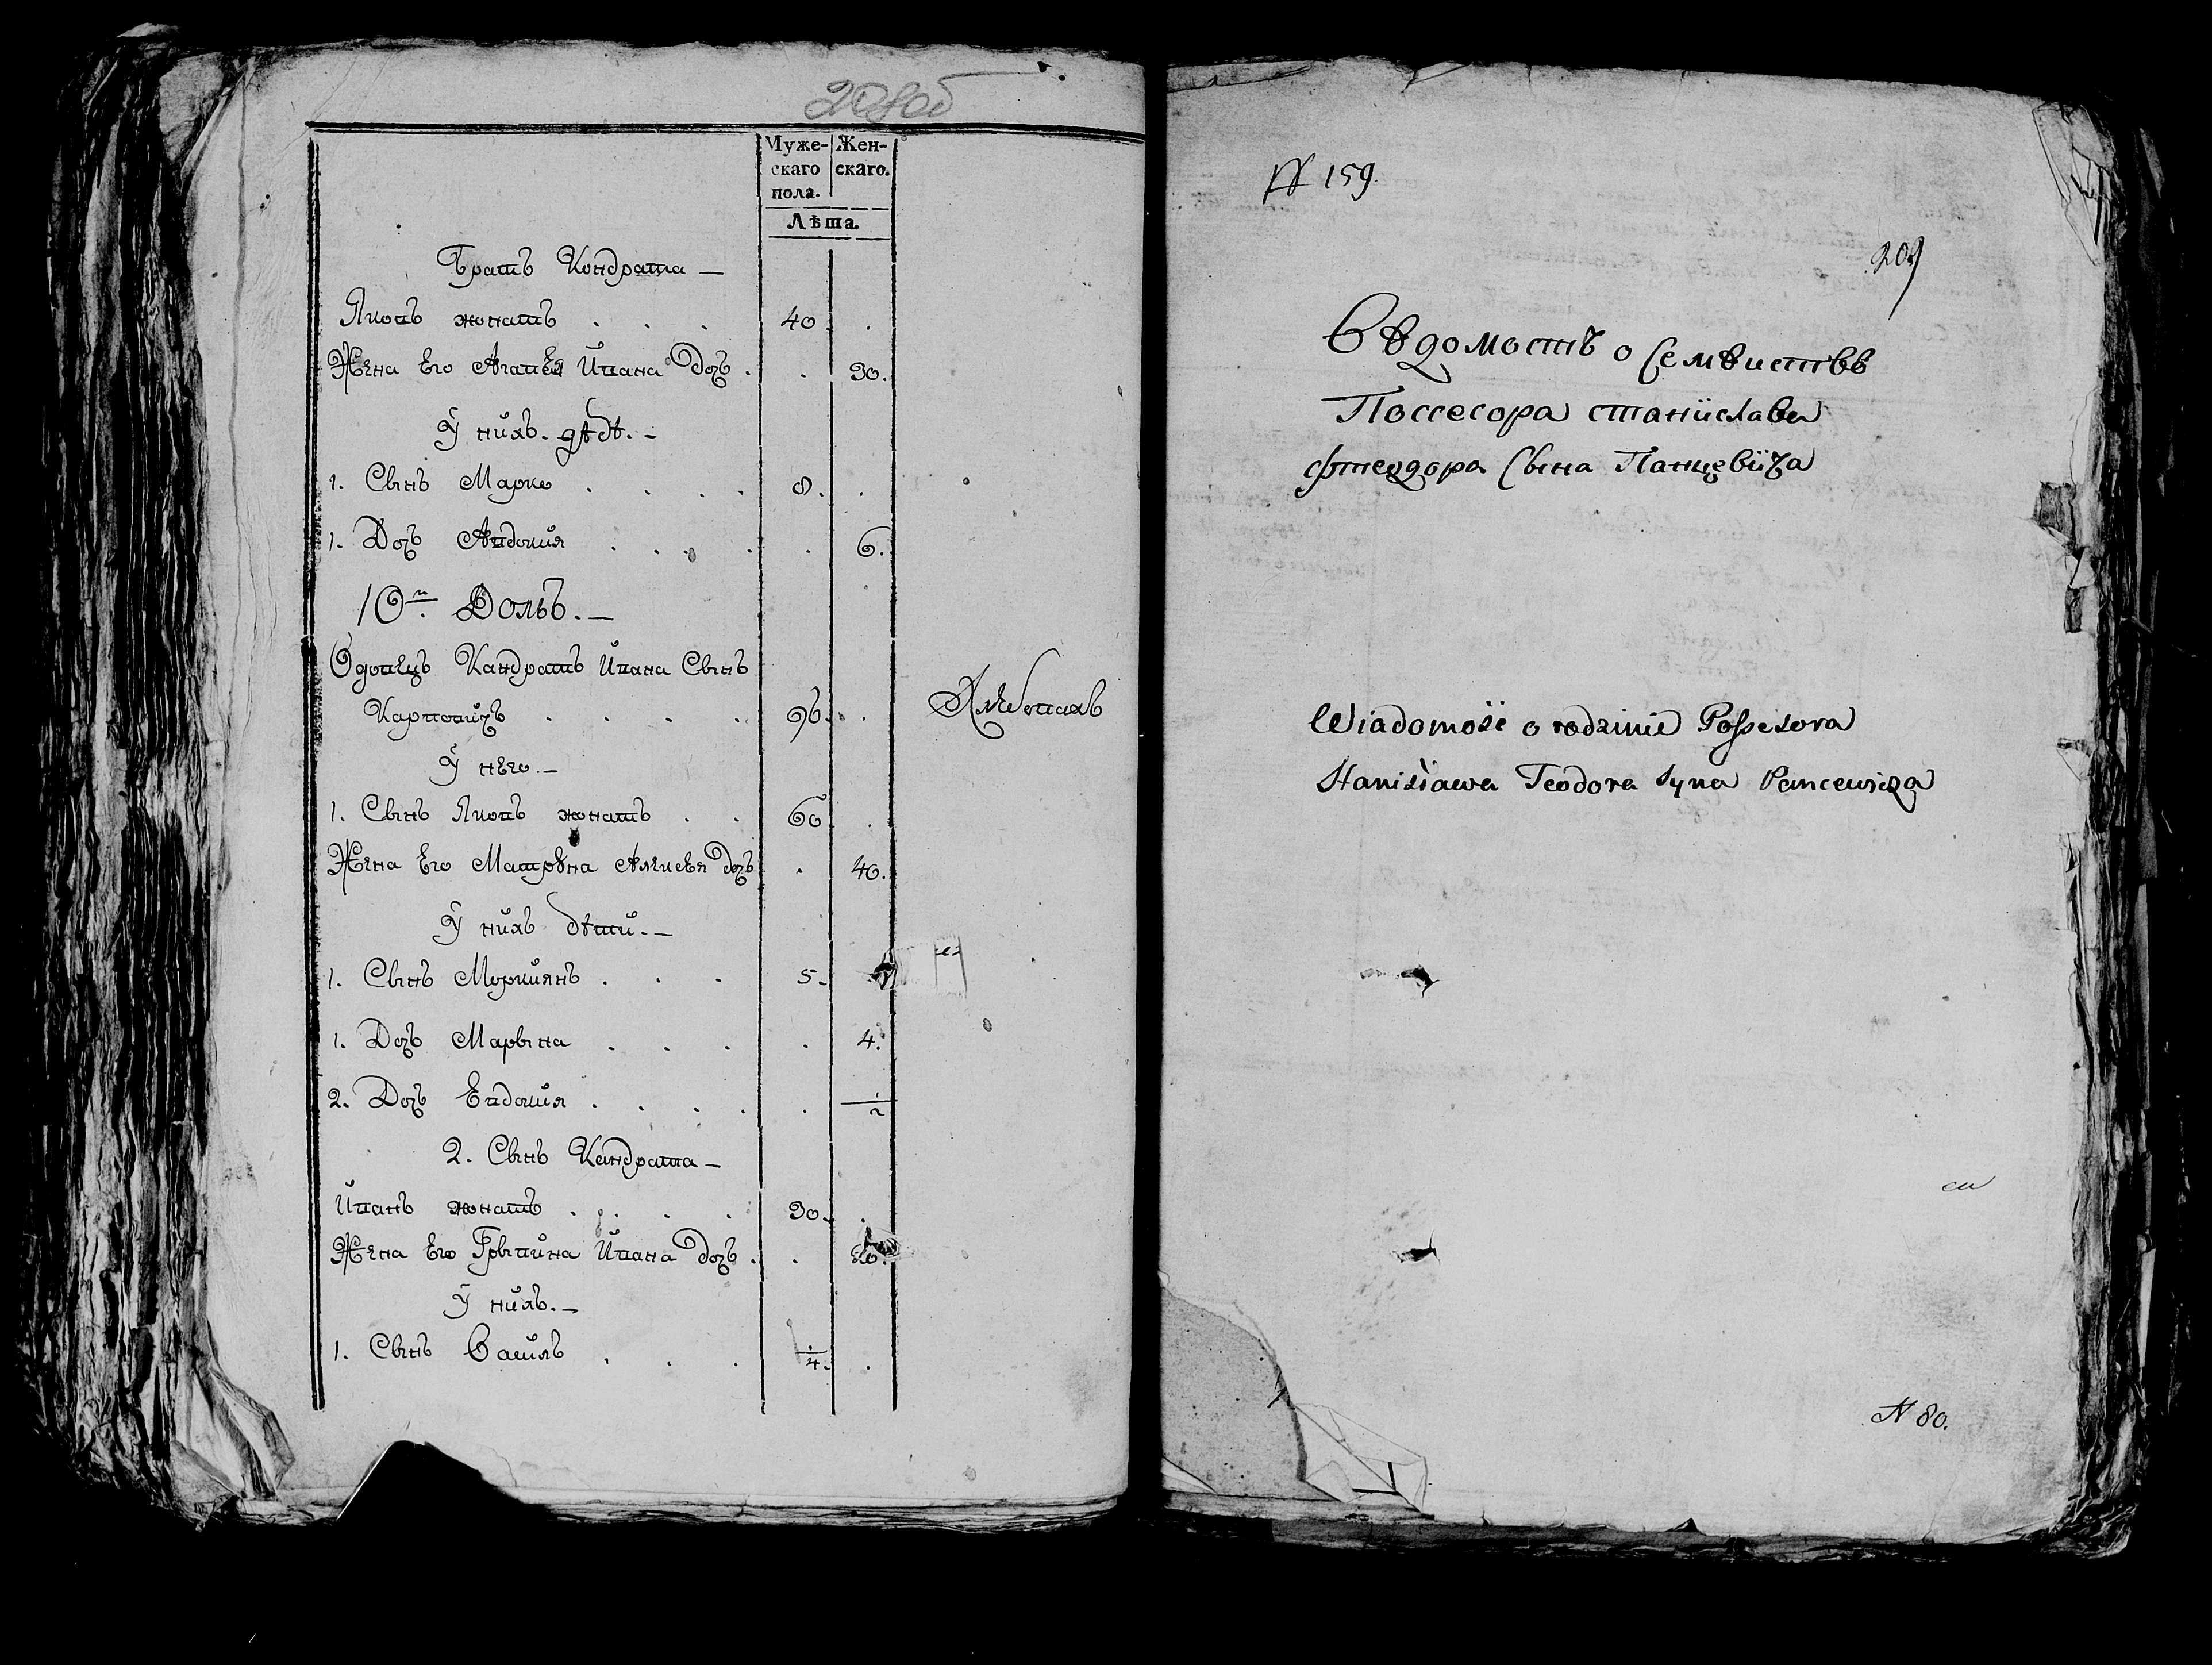 208об
Муже-
скаго
пола.
Жен-
скаго.
Лѣта.
Братъ Кондрата —
Яковъ жонатъ . . . 40 .
Жена Его Агапея Ивана Дочъ . . 30.
У нихъ. дѣт. —
1. Сынъ Марко . . . . 8. .
1. Дочъ Авдокия . . . . . 6.
10й Домъ. —
Вдовецъ Кандратъ Ивана Сынъ
Карповичъ . . . . 96. .
У него. —
1. Сынъ Яковъ жонатъ . . 60 .
Жена Его Матрона Алексея Дочъ . 40.
У нихъ дѣти. —
1. Сынъ Маркиянъ . . . 5.
1. Дочъ Марына . . . . 4.
2. Дочъ Евдокия . . . . . 1/2
2. Сынъ Кандрата —
Иванъ жонатъ . . . . 30. .
Жена Его Грыпина Ивана Дочъ . . 20.
У нихъ. —
1. Сынъ Василь . . . 1/4. .
№ 159.
209
Вѣдомостъ о Семѣиствѣ
Поссесора станислава
фтеодора Сына Панцевича
Wiadomość o rodzinie Possesora
Stanisława Teodora syna Pancewicza
№ 80.